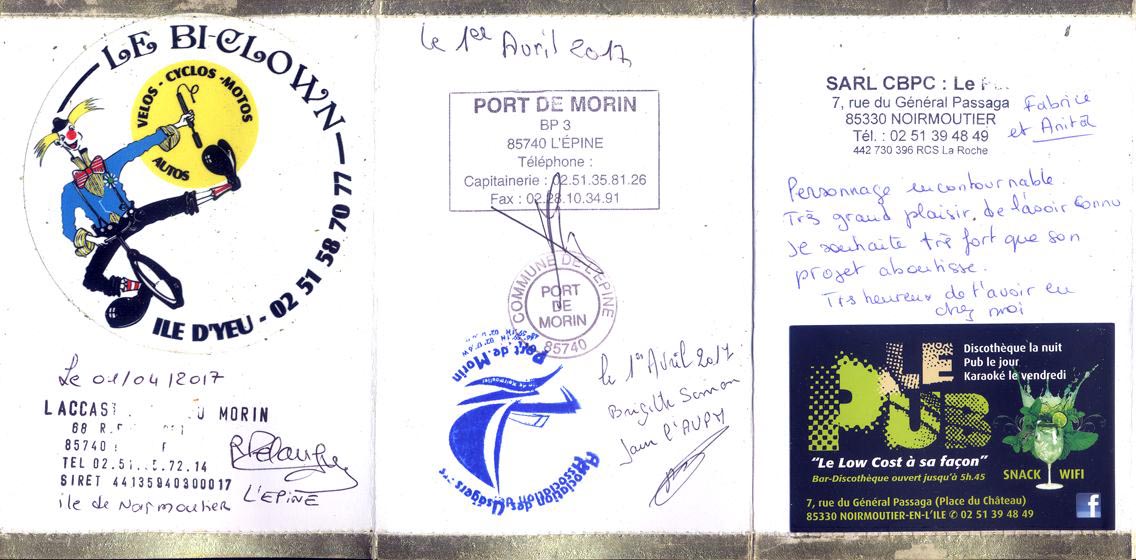 LE BI-CLOWN
VELOS - CYCLOS - MOTOS
AUTOS
ILE D'YEU - 02 51 58 70 77
Le 01/04/2017
LACCAST MORIN
68 R.
85740
TEL 02.51. .72.14
SIRET 44135940300017
L'EPINE
île de Noirmoutier
le 1er Avril 2017
PORT DE MORIN
BP 3
85740 L'ÉPINE
Téléphone :
Capitainerie : 02.51.35.81.26
Fax : 02.28.10.34.91
COMMUNE DE L'EPINE
PORT
DE
MORIN
85740
Port de Morin
Association des Usagers
le 1er Avril 2017
Brigitte
SARL CBPC : Le
7, rue du Général Passaga
85330 NOIRMOUTIER
Tél. : 02 51 39 48 49
442 730 396 RCS La Roche
Fabrice
et Anita
Personnage incontournable.
Très grand plaisir de l'avoir connu
Je souhaite très fort que son
projet aboutisse.
Très heureux de t'avoir eu
chez moi
LE
PUB
Discothèque la nuit
Pub le jour
Karaoké le vendredi
"Le Low Cost à sa façon"
Bar-Discothèque ouvert jusqu'à 5h.45
SNACK WIFI
7, rue du Général Passaga (Place du Château)
85330 NOIRMOUTIER-EN-L'ILE ✆ 02 51 39 48 49
f